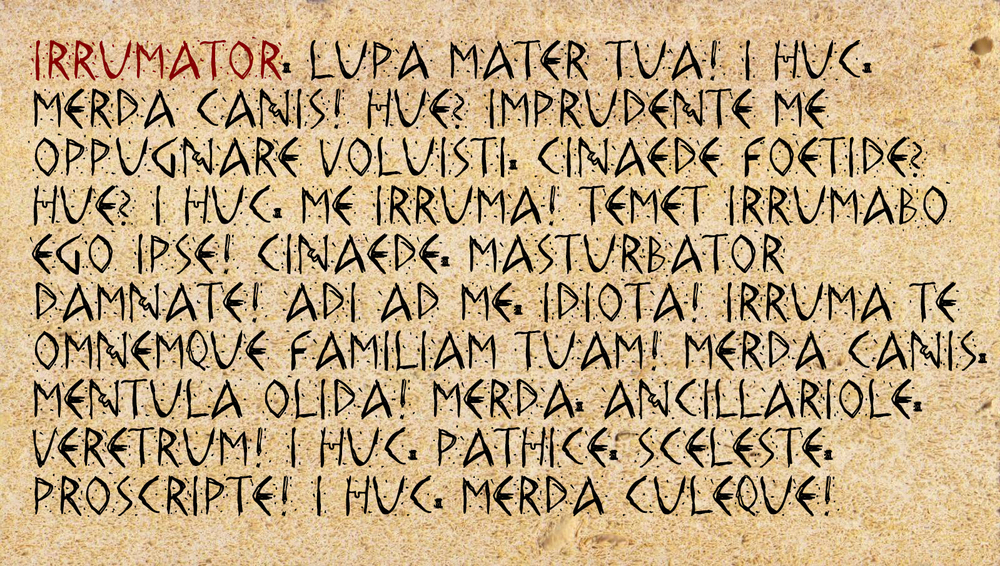 IRRUMATOR, LUPA MATER TUA! I HUC,
MERDA CANIS! HUE? IMPRUDENTE ME
OPPUGNARE VOLUISTI, CINAEDE FOETIDE?
HUE? I HUC, ME IRRUMA! TEMET IRRUMABO
EGO IPSE! CINAEDE, MASTURBATOR
DAMNATE! ADI AD ME, IDIOTA! IRRUMA TE
OMNEMQUE FAMILIAM TUAM! MERDA CANIS,
MENTULA OLIDA! MERDA, ANCILLARIOLE,
VERETRUM! I HUC, PATHICE, SCELESTE,
PROSCRIPTE! I HUC, MERDA CULEQUE!